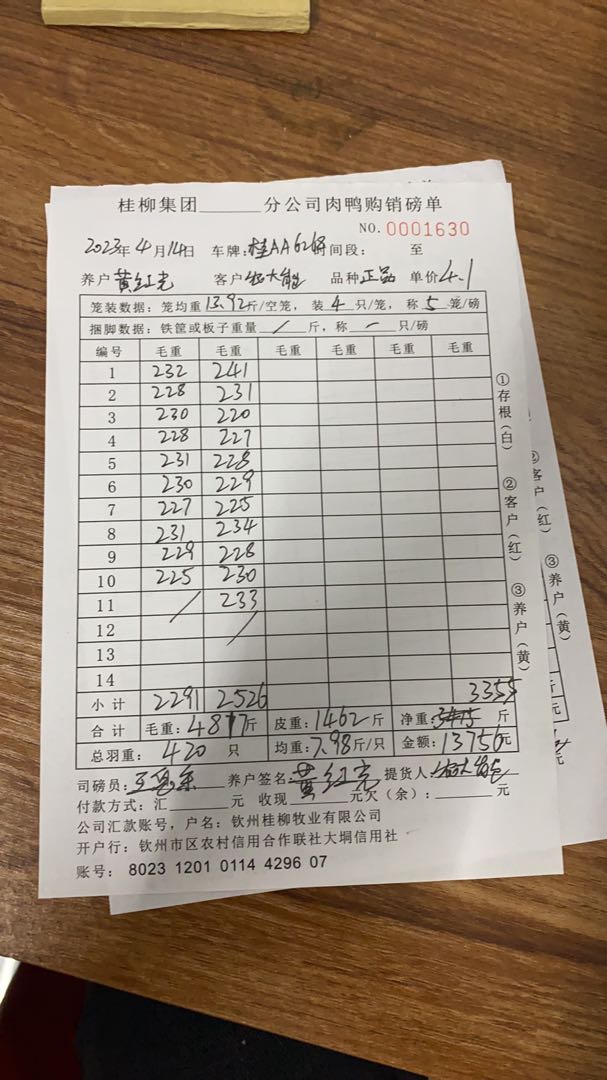 桂柳集团______分公司肉鸭购销磅单
NO. 0001630
2023年4月14日 车牌:桂AA6268 时间段: 至
养户 黄红光 客户 品种 正品 单价 4.1
笼装数据: 笼均重 13.92斤/空笼, 装 4 只/笼, 称 5 笼/磅
捆脚数据: 铁筐或板子重量 / 斤, 称 一 只/磅
编号 毛重 毛重 毛重 毛重 毛重 毛重
1 232 241
2 228 231
3 230 220
4 228 227
5 231 228
6 230 229
7 227 225
8 231 234
9 229 228
10 225 230
11 / 233
12 /
13
14
小计 2291 2526 3355
合计 毛重:4817斤 皮重:1462斤 净重:3415 斤
总羽重: 420 只 均重:7.98斤/只 金额:13756元
司磅员: 养户签名:黄红光 提货人:
付款方式: 汇______元 收现______元欠（余）:______元
公司汇款账号, 户名: 钦州桂柳牧业有限公司
开户行: 钦州市区农村信用合作联社大垌信用社
账号: 8023 1201 0114 4296 07
①存根（白）
②客户（红）
③养户（黄）
②客户（红）
③养户（黄）
斤
元